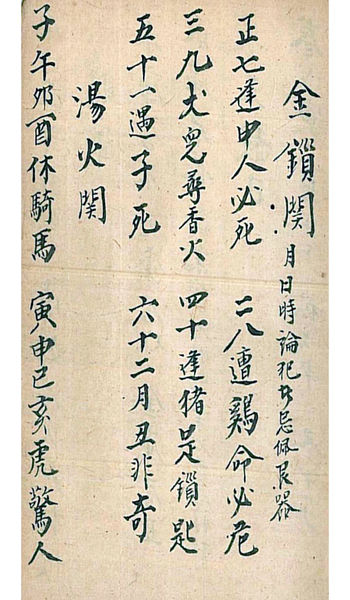 金鎖関 月日時論犯忌佩艮器
正七逢申人必死 二八遭鷄命必危
三九犬兒尋香火 四十逢猪是鎖匙
五十一遇子死 六十二月丑非奇
湯火関
子午卯酉休騎馬 寅申巳亥虎驚人